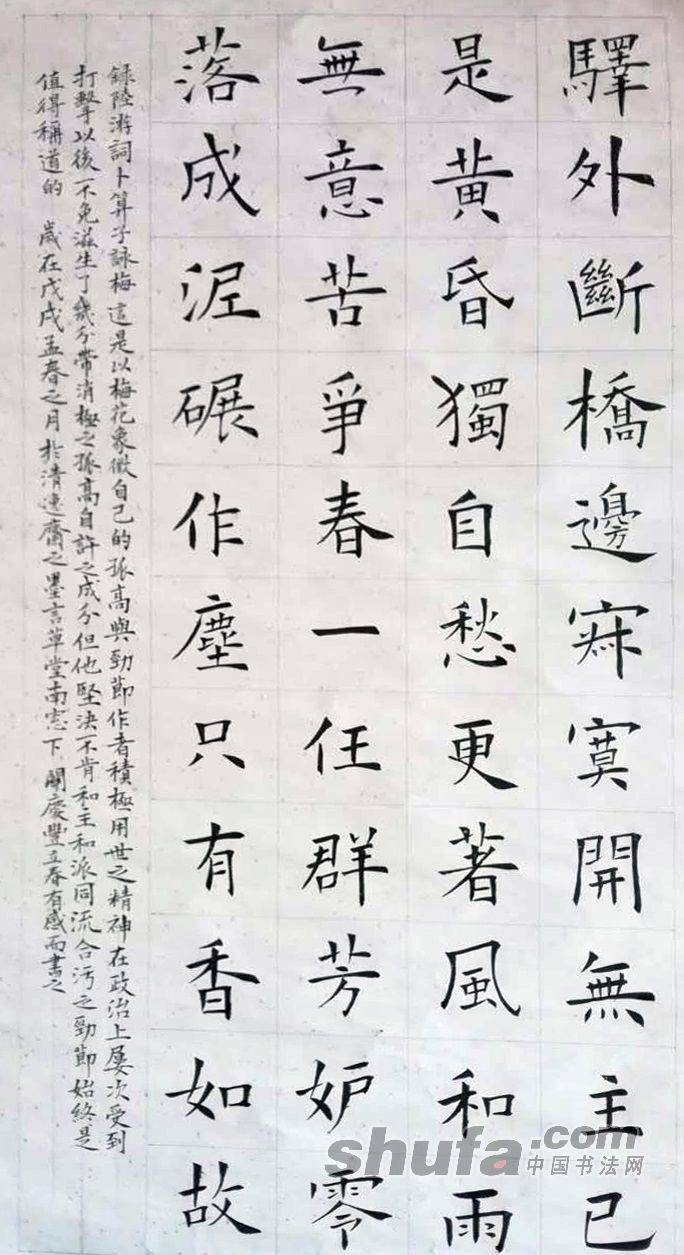 驛外斷橋邊寂寞開無主已
是黃昏獨自愁更著風和雨
無意苦爭春一任群芳妒零
落成泥碾作塵只有香如故
錄陸游詞卜算子詠梅這是以梅花象徵自己的孤高與勁節作者積極用世之精神在政治上屢次受到
打擊以後不免滋生了幾分帶消極之孤高自許之成分但他堅決不肯和主和派同流合污之勁節始終是
值得稱道的 歲在戊戌孟春之月於清蓮齋之墨言草堂南窓下 闞慶豐立春有感而書之
shufa.com
中国书法网